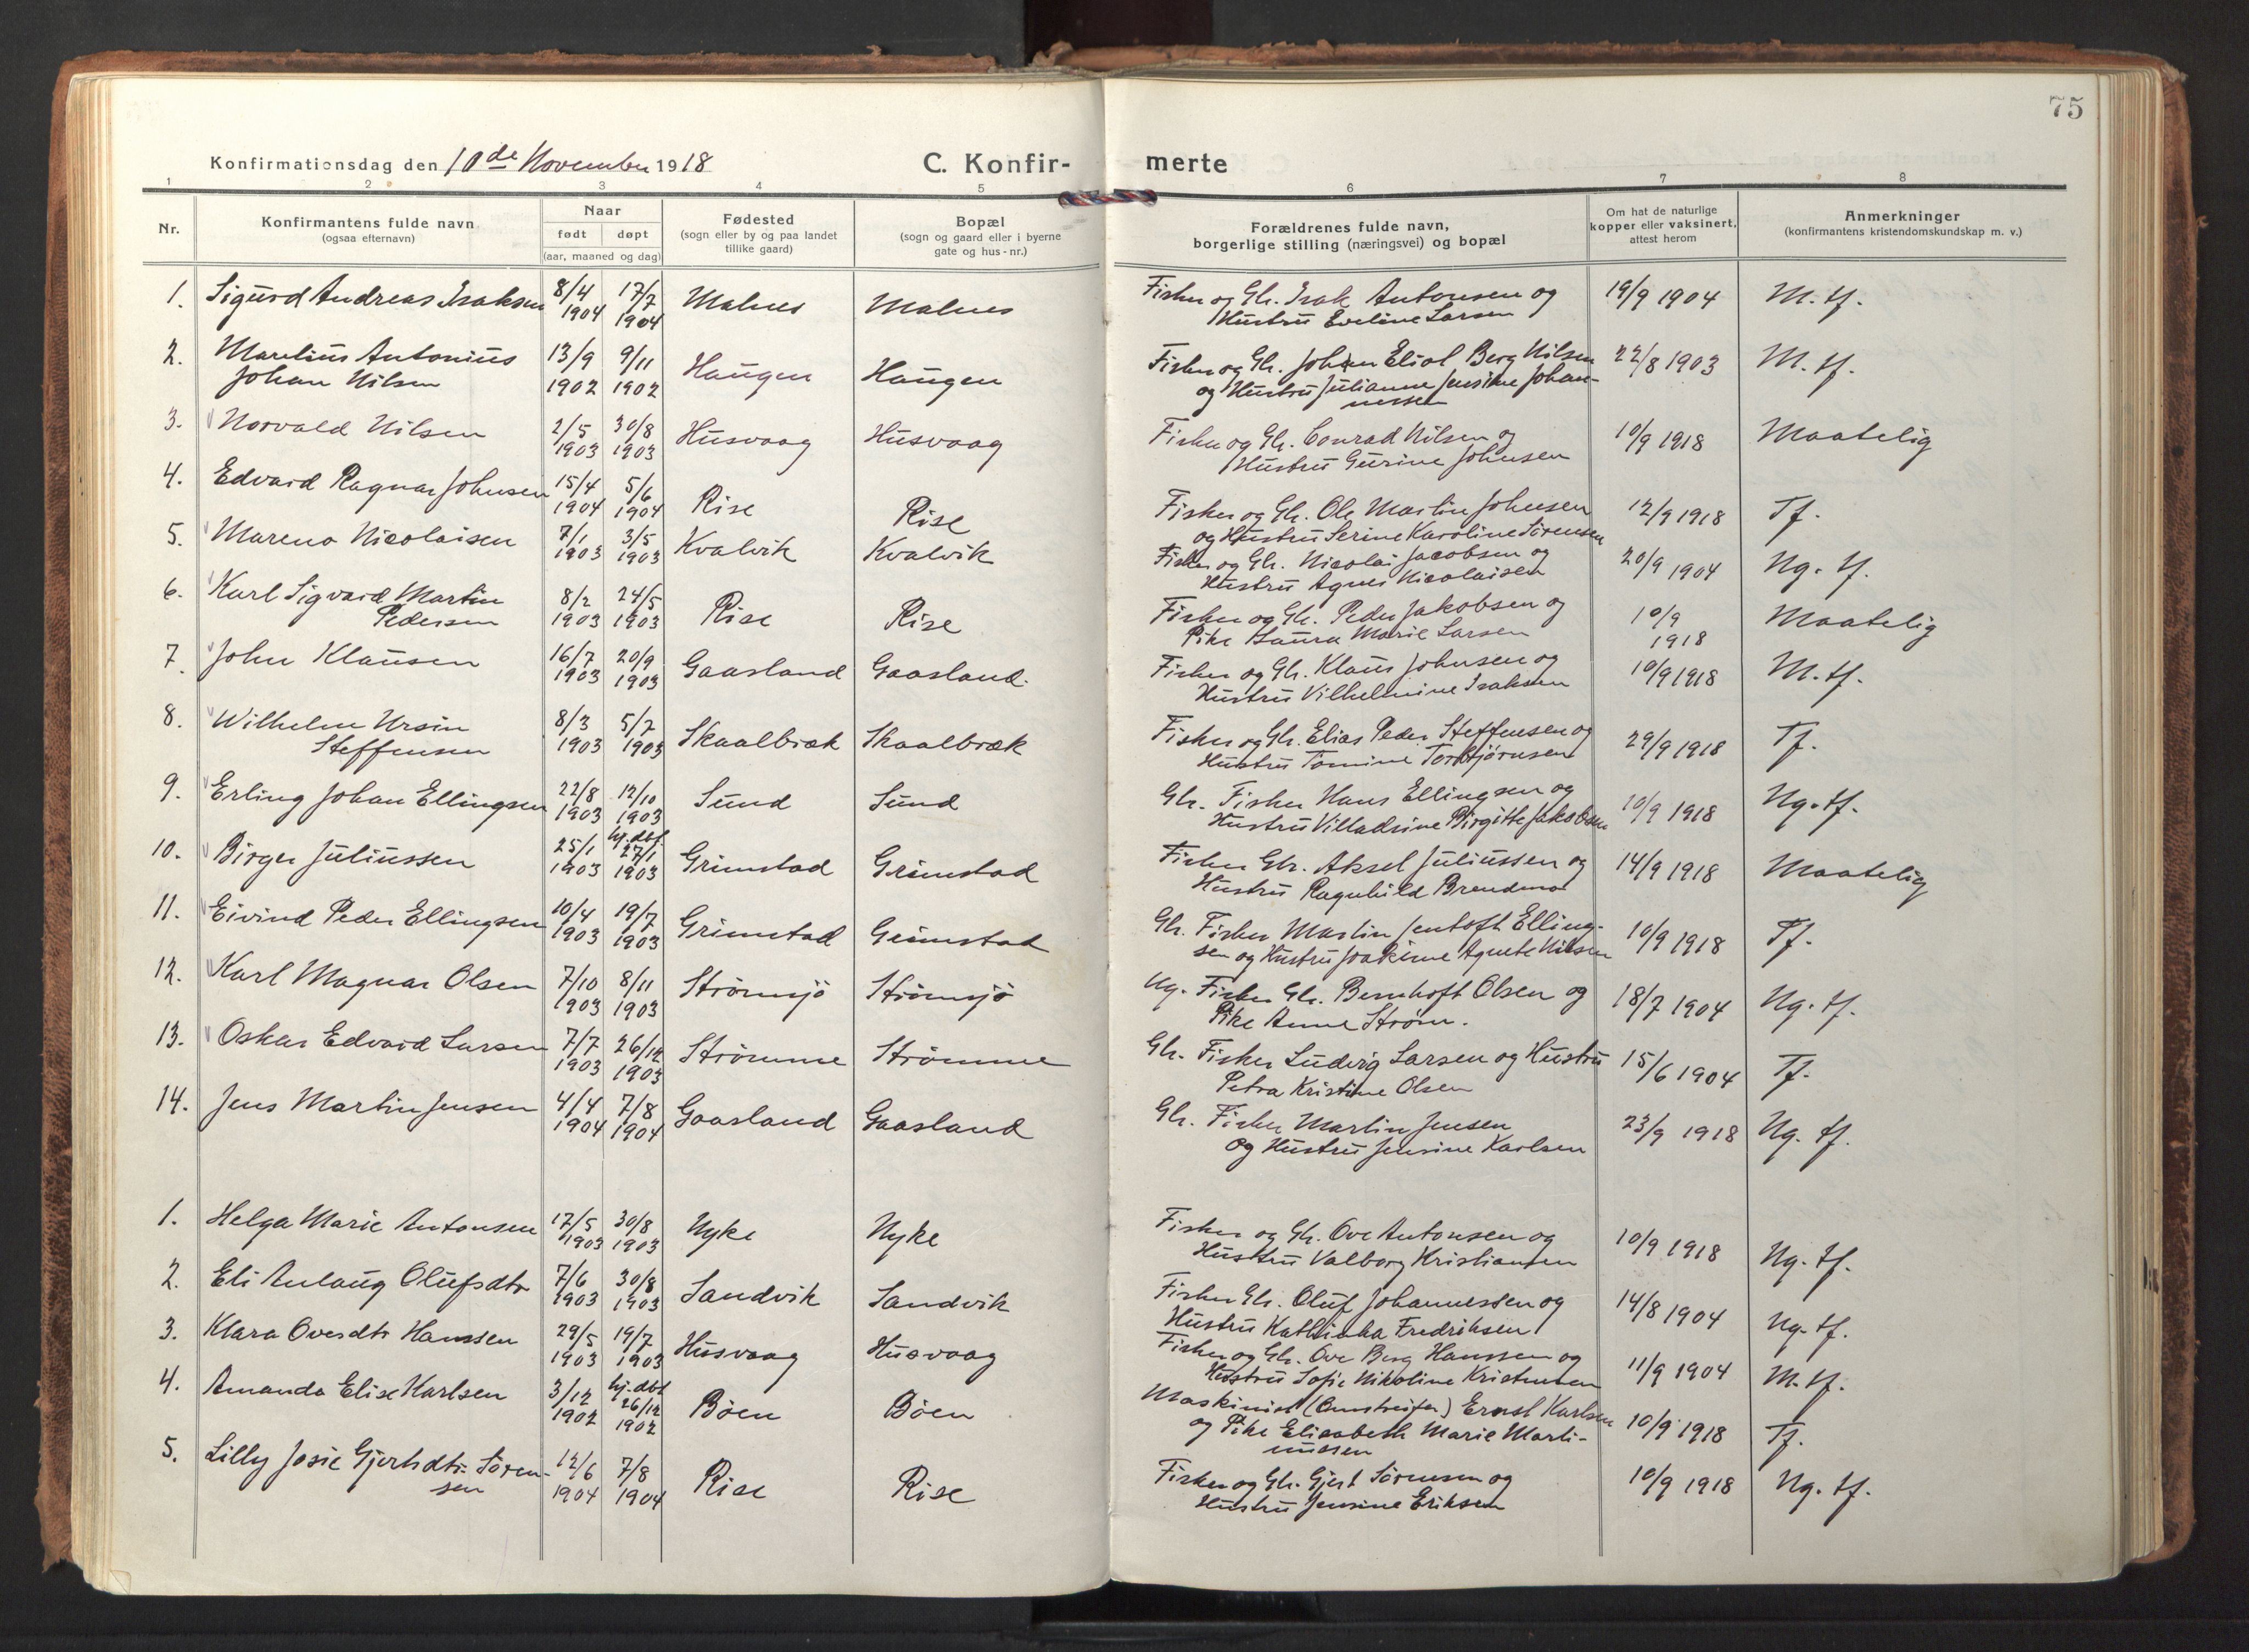 75
Konfirmationsdag den 10de November 1918
C. Konfir-
merte
1 2 3 4 5 6 7 8
Nr.
Konfirmantens fulde navn
(ogsaa efternavn)
Naar
født døpt
(aar, maaned og dag)
Fødested
(sogn eller by og paa landet
tillike gaard)
Bopæl
(sogn og gaard eller i byerne
gate og hus-nr.)
Forældrenes fulde navn,
borgerlige stilling (næringsvei) og bopæl
Om hat de naturlige
kopper eller vaksinert,
attest herom
Anmerkninger
(konfirmantens kristendomskundskap m. v.)
1. Sigurd Andreas Isaksen 8/4 1904 17/7 1904 Malnes Malnes Fisker og Gbr. Isak Antonsen og
Hustru Eveline Larsen 19/9 1904 M. tf.
2. Marelius Antonius
Johan Nilsen 13/9 1902 9/11 1902 Haugen Haugen Fisker og Gbr. Johan Eliot Berg Nilsen
og Hustru Julianne Jensine Johan-
nessen 22/8 1903 M. tf.
3. Norvald Nilsen 2/5 1903 30/8 1903 Husvaag Husvaag Fisker og Gbr. Conrad Nilsen og
Hustru Gurine Johnsen 10/9 1918 Maatelig
4. Edvard Ragnar Johnsen 15/4 1904 5/6 1904 Rise Rise Fisker og Gbr. Ole Martin Johnsen
og Hustru Serine Karoline Sørensen 12/9 1918 Tf.
5. Mareno Nicolaisen 7/1 1903 3/5 1903 Kvalvik Kvalvik Fisker og Gbr. Nicolai Jacobsen og
Hustru Agnes Nicolaisen 20/9 1904 Ng. tf.
6. Karl Sigvard Martin
Pedersen 8/2 1903 24/5 1903 Rise Rise Fisker og Gbr. Peder Jakobsen og
Pike Laura Marie Larsen 10/9 1918 Maatelig
7. John Klausen 16/7 1903 20/9 1903 Gaasland Gaasland. Fisker og Gbr. Klaus Johnsen og
Hustru Vilhelmine Isaksen 10/9 1918 M. tf.
8. Wilhelm Ursin
Steffensen 8/3 1903 5/7 1903 Skaalbræk Skaalbræk Fisker og Gbr. Elias Peder Steffensen og
Hustru Tomine Torbjørnsen 29/9 1918 Tf.
9. Erling Johan Ellingsen 22/8 1903 12/10 1903 Sund Sund Gbr. Fisker Hans Ellingsen og
Hustru Villadsine Birgitte Jakobsen 10/9 1918 Ng. tf.
10. Birger Juliussen 25/1 1903 hj. dbt. 27/1. 1903 Grimstad Grimstad Fisker Gbr. Aksel Juliussen og
Hustru Ragnhild Brendmo 14/9 1918 Maatelig
11. Eivind Peder Ellingsen 10/4 1903 19/7 1903 Grimstad Grimstad Gbr. Fisker Martin Jentoft Elling-
sen og Hustru Joakime Agnete Nilsen 10/9 1918 Tf.
12. Karl Magnar Olsen 7/10 1903 8/11 1903 Strømsjö Strømsjö Ug. Fisker Gbr. Bernhoft Olsen og
Pike Anne Strøm. 18/7 1904 Ng. tf.
13. Oskar Edvard Larsen 7/7 1903 26/12 1903 Strømme Strømme Gbr. Fisker Ludvig Larsen og Hustru
Petra Kristine Olsen 15/6 1904 Tf.
14. Jens Martin Jensen 4/4 1904 7/8 1904 Gaasland Gaasland Gbr. Fisker Martin Jensen
og Hustru Jensine Karlsen 23/9 1918 Ng. tf.
1. Helga Marie Antonsen 17/5 1903 30/8 1903 Nyke Nyke Fisker og Gbr. Ove Antonsen og
Hustru Valborg Kristiansen 10/9 1918 Ng. tf.
2. Eli Anlaug Olufsdtr 7/6 1903 30/8 1903 Sandvik Sandvik Fisker Gbr. Oluf Johannessen og
Hustru Kathinka Fredriksen 14/8 1904 Ng. tf.
3. Klara Ovesdtr Hanssen 29/5 1903 19/7 1903 Husvaag Husvaag Fisker og Gbr. Ove Berg Hanssen og
Hustru Sofie Nikoline Kristensen 11/9 1904 M. tf.
4. Amanda Elise Karlsen 3/12 1902 hj. dbt 26/12 1902 Bøen Bøen Maskinist Ernst Karlsen
og Pike Elisabeth Marie Marti-
nussen 10/9 1918 Tf.
5. Lilly Josie Gjertsdtr. Søren-
sen 12/6 1904 7/8 1904 Rise Rise Fisker og Gbr. Gjert Sørensen og
Hustru Jensine Eriksen 10/9 1918 Ng. tf.